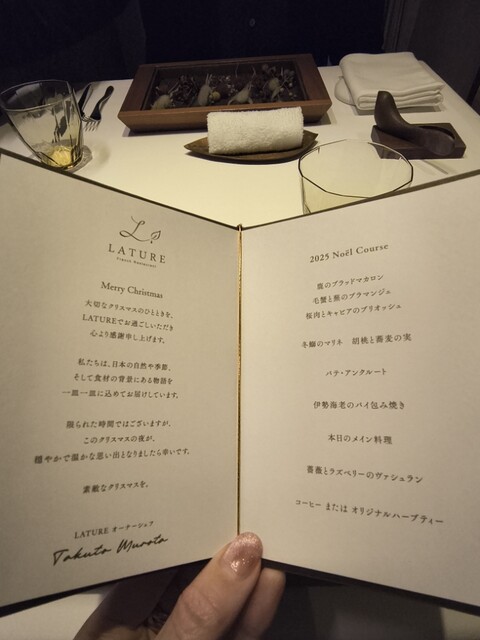 LATURE
French Restaurant
Merry Christmas
大切なクリスマスのひとときを、
LATUREでお過ごしいただき
心より感謝申し上げます。
私たちは、日本の自然や季節、
そして食材の背景にある物語を
一皿一皿に込めてお届けしています。
限られた時間ではございますが、
このクリスマスの夜が、
穏やかで温かな思い出となりましたら幸いです。
素敵なクリスマスを。
LATURE オーナーシェフ
Takuto Murota
2025 Noël Course
鹿のブラッドマカロン
毛蟹と蕪のブラマンジェ
桜肉とキャビアのブリオッシュ
冬鰤のマリネ 胡桃と蕎麦の実
パテ・アンクルート
伊勢海老のパイ包み焼き
本日のメイン料理
薔薇とラズベリーのヴァシュラン
コーヒー または オリジナルハーブティー